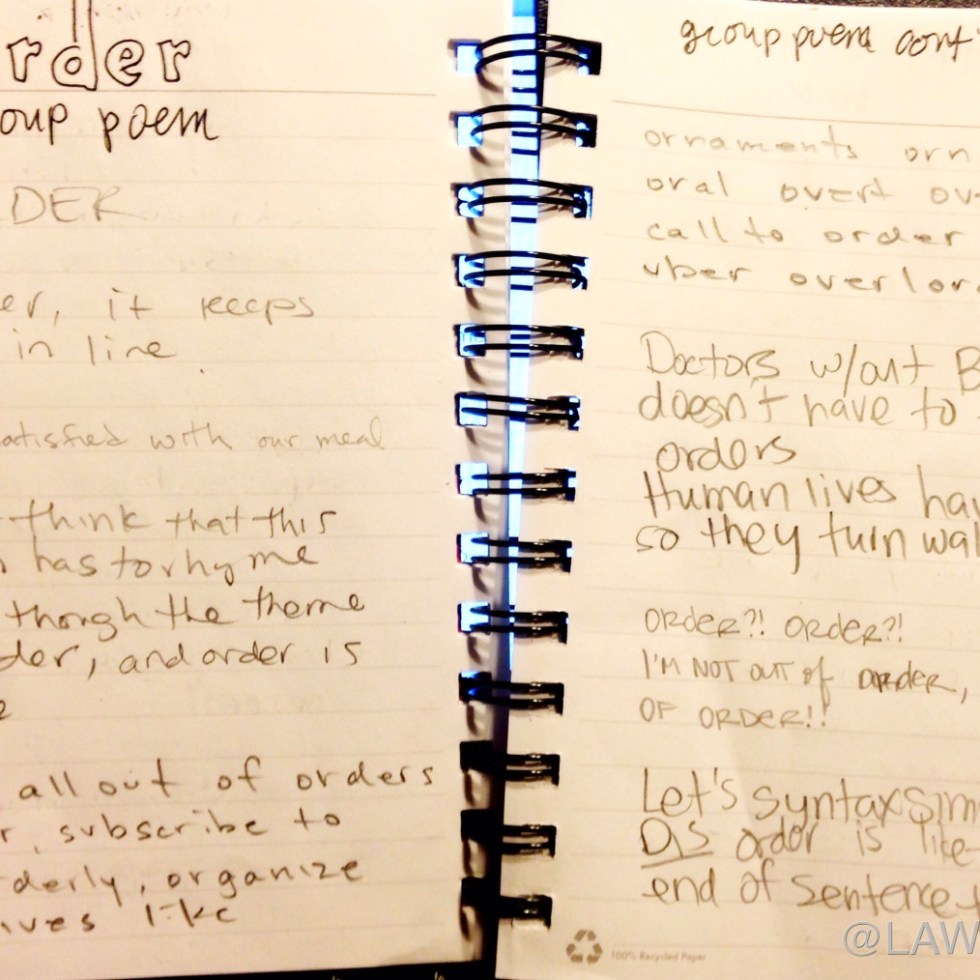 rder
oup poem
DER
er, it keeps
in line
satisfied with our meal
think that this
has to rhyme
though the theme
der, and order is
e
all out of orders
r, subscribe to
derly, organize
ives like
group poem cont'
ornaments orn
oral overt ov
call to order
uber overlor
Doctors w/out B
doesn't have to
orders
Human lives ha
so they turn wal
ORDER?! ORDER?!
I'M NOT OUT OF ORDER,
OF ORDER!!
Let's syntax sim
DIS order is like
end of sentence
100% Recycled Paper
@LAW